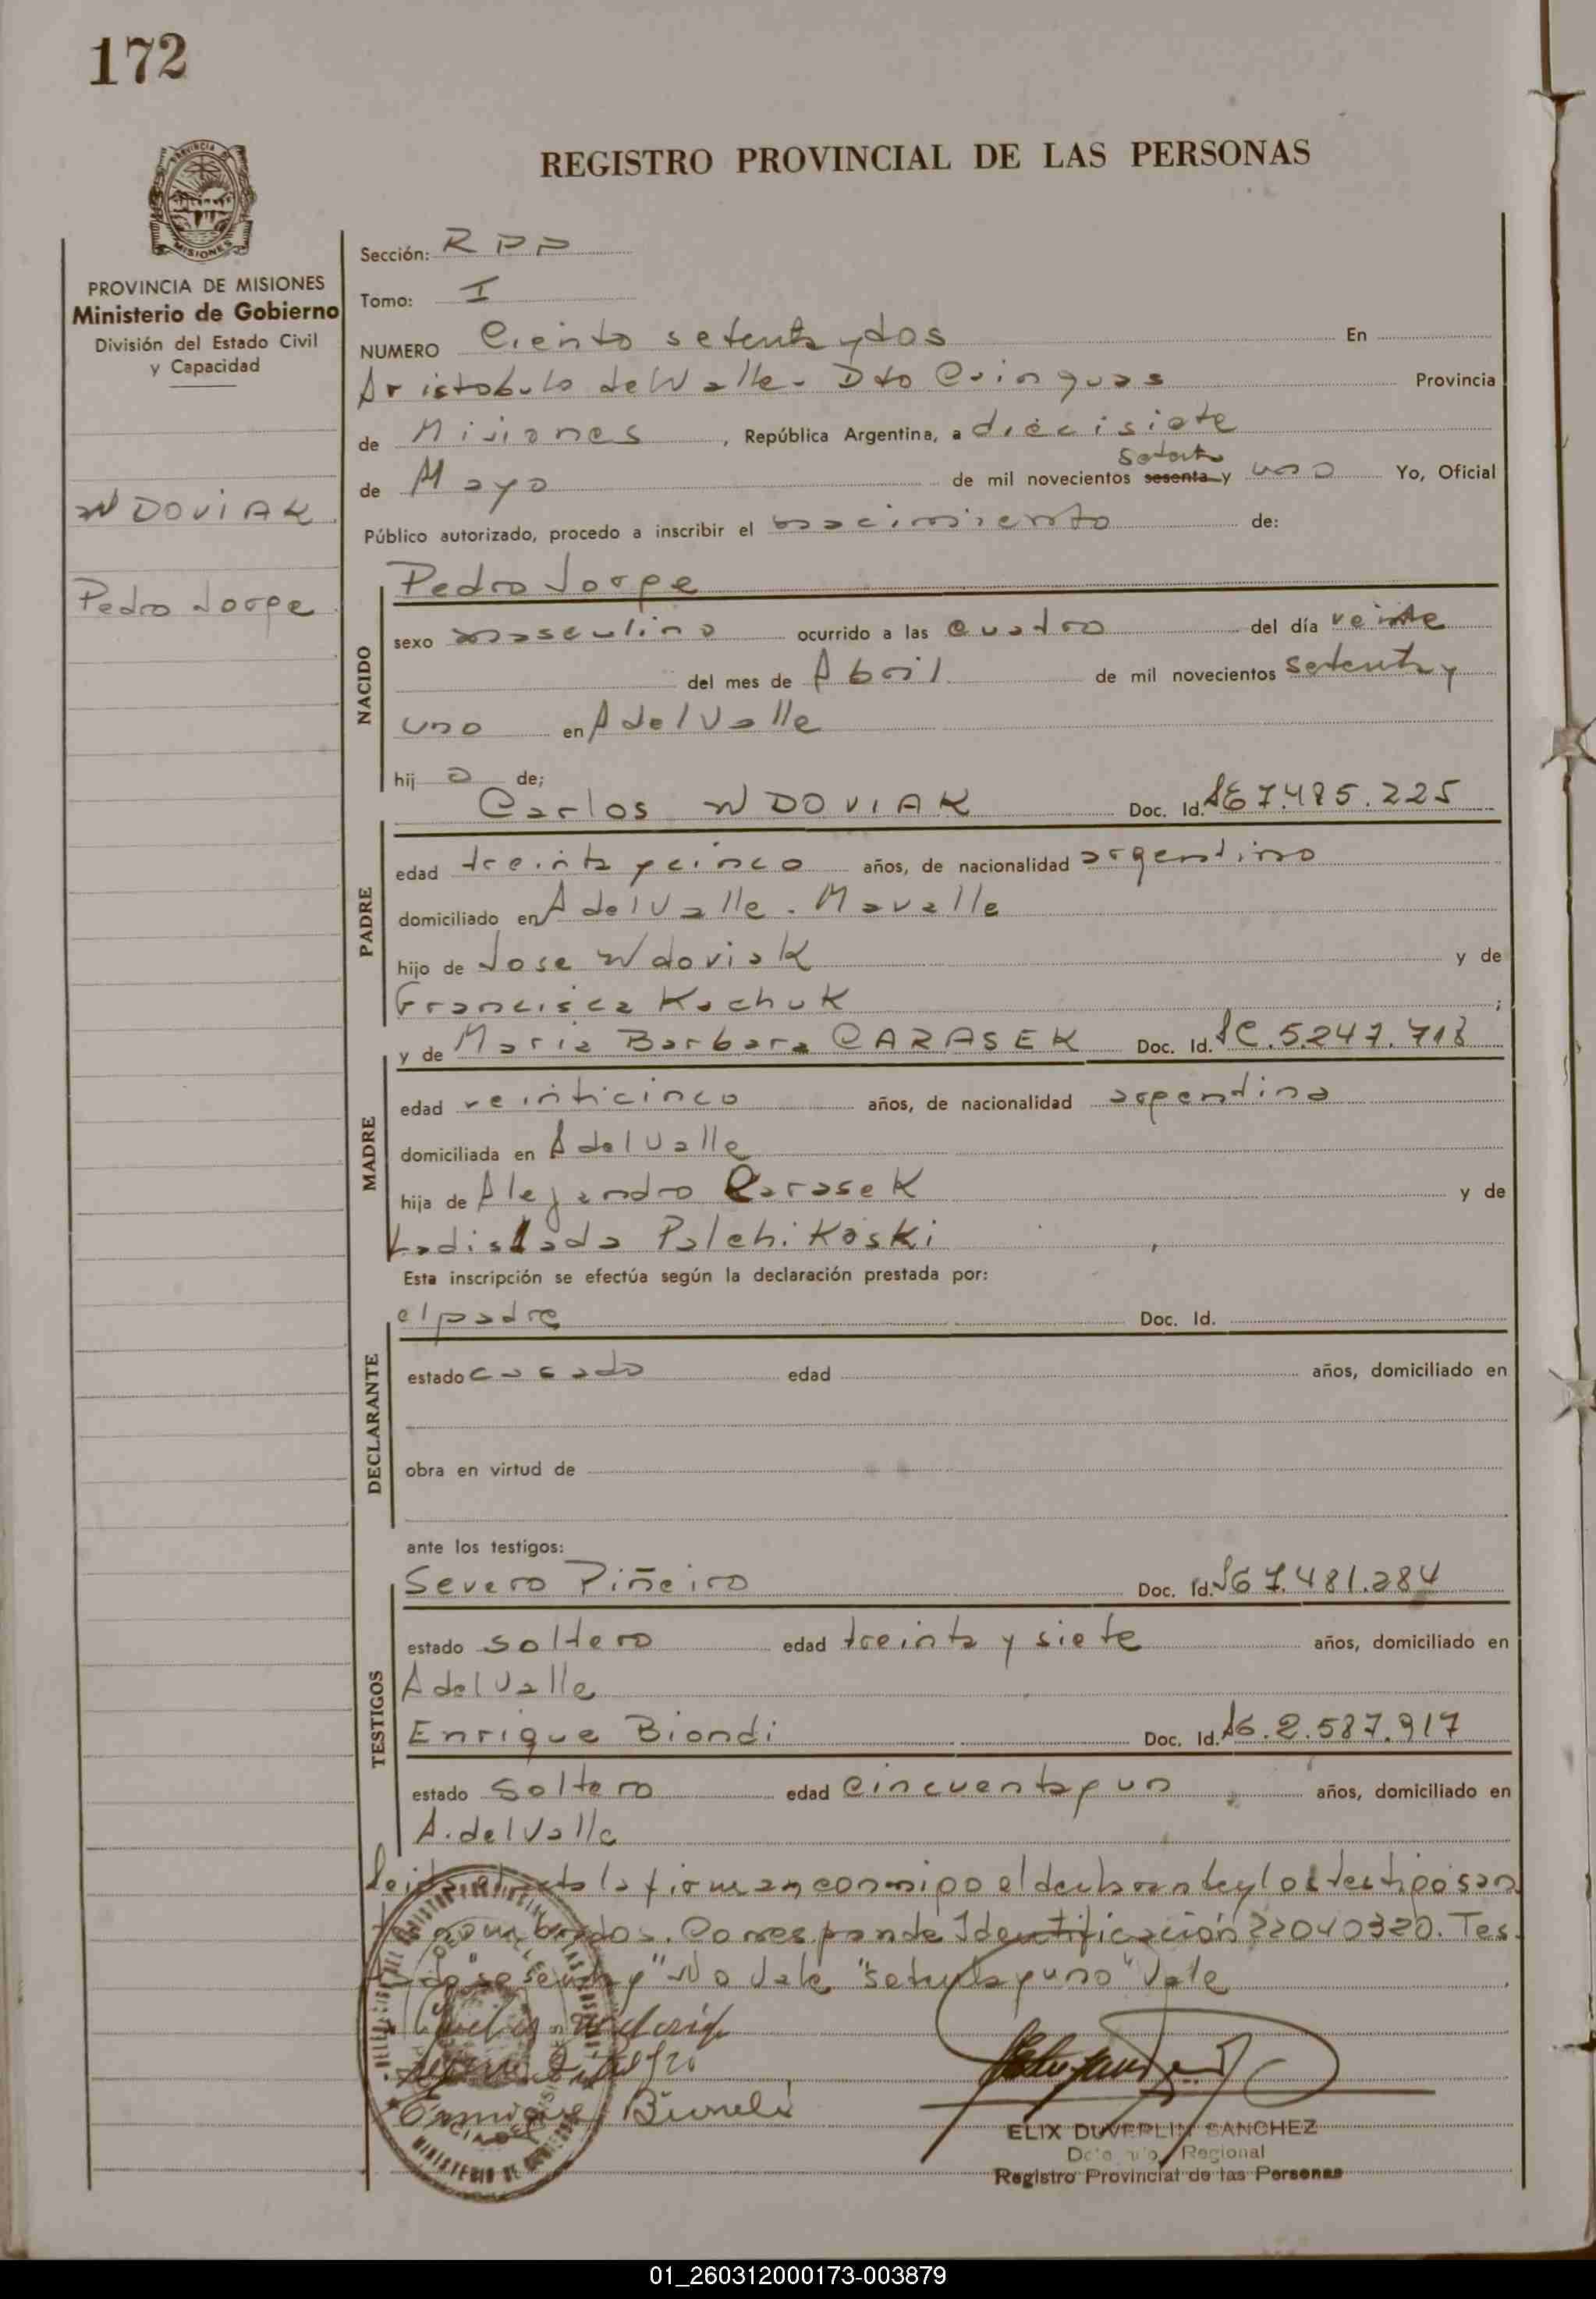 172
REGISTRO PROVINCIAL DE LAS PERSONAS
PROVINCIA DE MISIONES
Ministerio de Gobierno
División del Estado Civil
y Capacidad
WDOVIAK
Pedro Jorge
Sección: RPP
Tomo: I
NUMERO Ciento setenta y dos En
Aristobulo del Valle - Dto Cainguas Provincia
de Misiones, República Argentina, a diecisiete
setenta
de Mayo de mil novecientos sesenta y uno Yo, Oficial
Público autorizado, procedo a inscribir el nacimiento de:
Pedro Jorge
NACIDO
sexo masculino ocurrido a las cuatro del día veinte
del mes de Abril de mil novecientos setenta y
uno en A del Valle
hij o de;
Carlos WDOVIAK Doc. Id. 7.485.225
PADRE
edad treinta y cinco años, de nacionalidad argentino
domiciliado en A del Valle. Mavalle
hijo de Jose Wdoviak y de
Francisca Kachuk ;
y de Maria Barbara CARASEK Doc. Id. LC. 5.247.718
MADRE
edad veinticinco años, de nacionalidad argentina
domiciliada en A del Valle
hija de Alejandro Carasek y de
Ladislada Palchikoski
Esta inscripción se efectúa según la declaración prestada por:
el padre Doc. Id.
DECLARANTE
estado casado edad años, domiciliado en
obra en virtud de
ante los testigos:
Severo Piñeiro Doc. Id. 7.481.284
TESTIGOS
estado soltero edad treinta y siete años, domiciliado en
A del Valle
Enrique Biondi Doc. Id. 2.587.917
estado soltero edad cincuenta y un años, domiciliado en
A. del Valle
Leida el acta la firman conmigo el declarante y los testigos an
nombrados. Corresponde Identificación 22040320. Tes
tado "sesenta y" No Vale "setenta y uno" Vale
Enrique Biondi
ELIX DUVERLIN SANCHEZ
Regional
Registro Provincial de las Personas
01_260312000173-003879